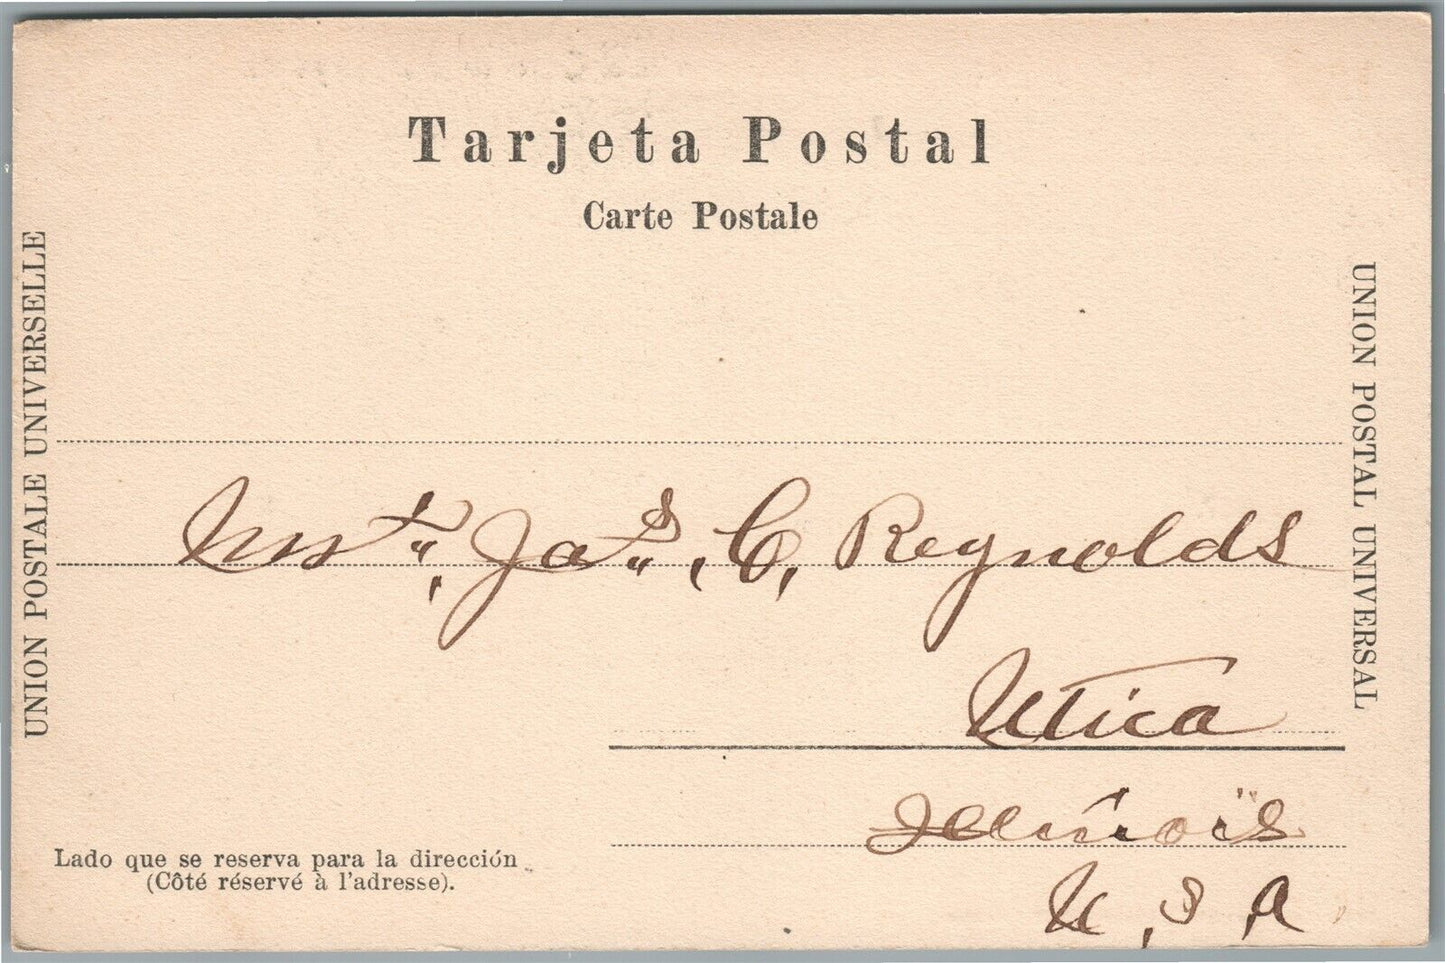 Tarjeta Postal
Carte Postale
UNION POSTALE UNIVERSELLE
UNION POSTAL UNIVERSAL
Jas., C, Reynolds
Utica
Illinois
U, S, A,
Lado que se reserva para la dirección
(Côté réservé à l'adresse).